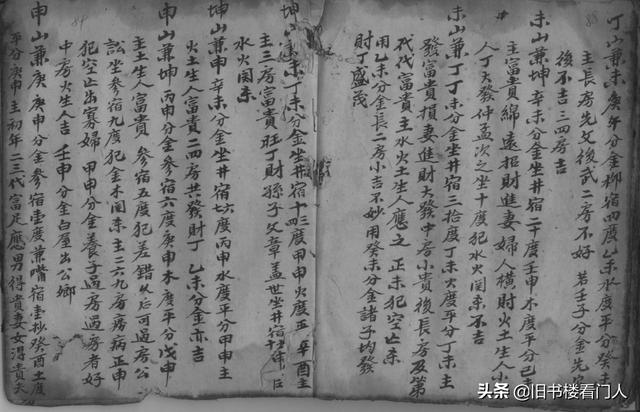 88
丁山兼未庚午分金柳宿四度乙未水度平分癸未
主長房先文後武二房不好 若壬子分金先公
後不吉三四房吉
未山兼坤辛未分金坐井宿二十度壬申木度平分已
主富貴綿遠招財進妻婦人橫財火土生人小
人丁大發仲孟次之坐十度犯水火関系不吉
未山兼丁丁未分金坐井宿三拾度丁未火度平分丁未主
發富貴損妻進財大發中房小貴後長房及第
代代富貴主水火土生人應之 正未犯空亡系
用乙未分金長二房小吉不妙用癸未分金諸子均發
財丁盛茂
84
坤山兼未丁未分金坐井宿十四度甲申火度正 辛酉主
主三房富貴旺丁財孫子文章盖世坐井宿
水火関系
坤山兼申辛未分金坐井宿七六度丙申水度平分甲申主
火土生人富貴二四房共發財丁 乙未分金亦吉
申山兼坤 丙申分金參宿六度庚申木度平分戊申
主土生人富貴 參宿五度犯差錯久后可過房公
訟坐參宿九度犯金木関系主二六九房痨病正申
犯空亡出寡婦 甲申分金養子過房過房者好
中房火生人吉 壬申分金白屋出公卿
申山兼庚庚申分金參宿壹度兼嘴宿壹抄癸酉土度
平分庚申主初年二三代富足應男得貴妻女得貴夫
头条 @旧书楼看门人